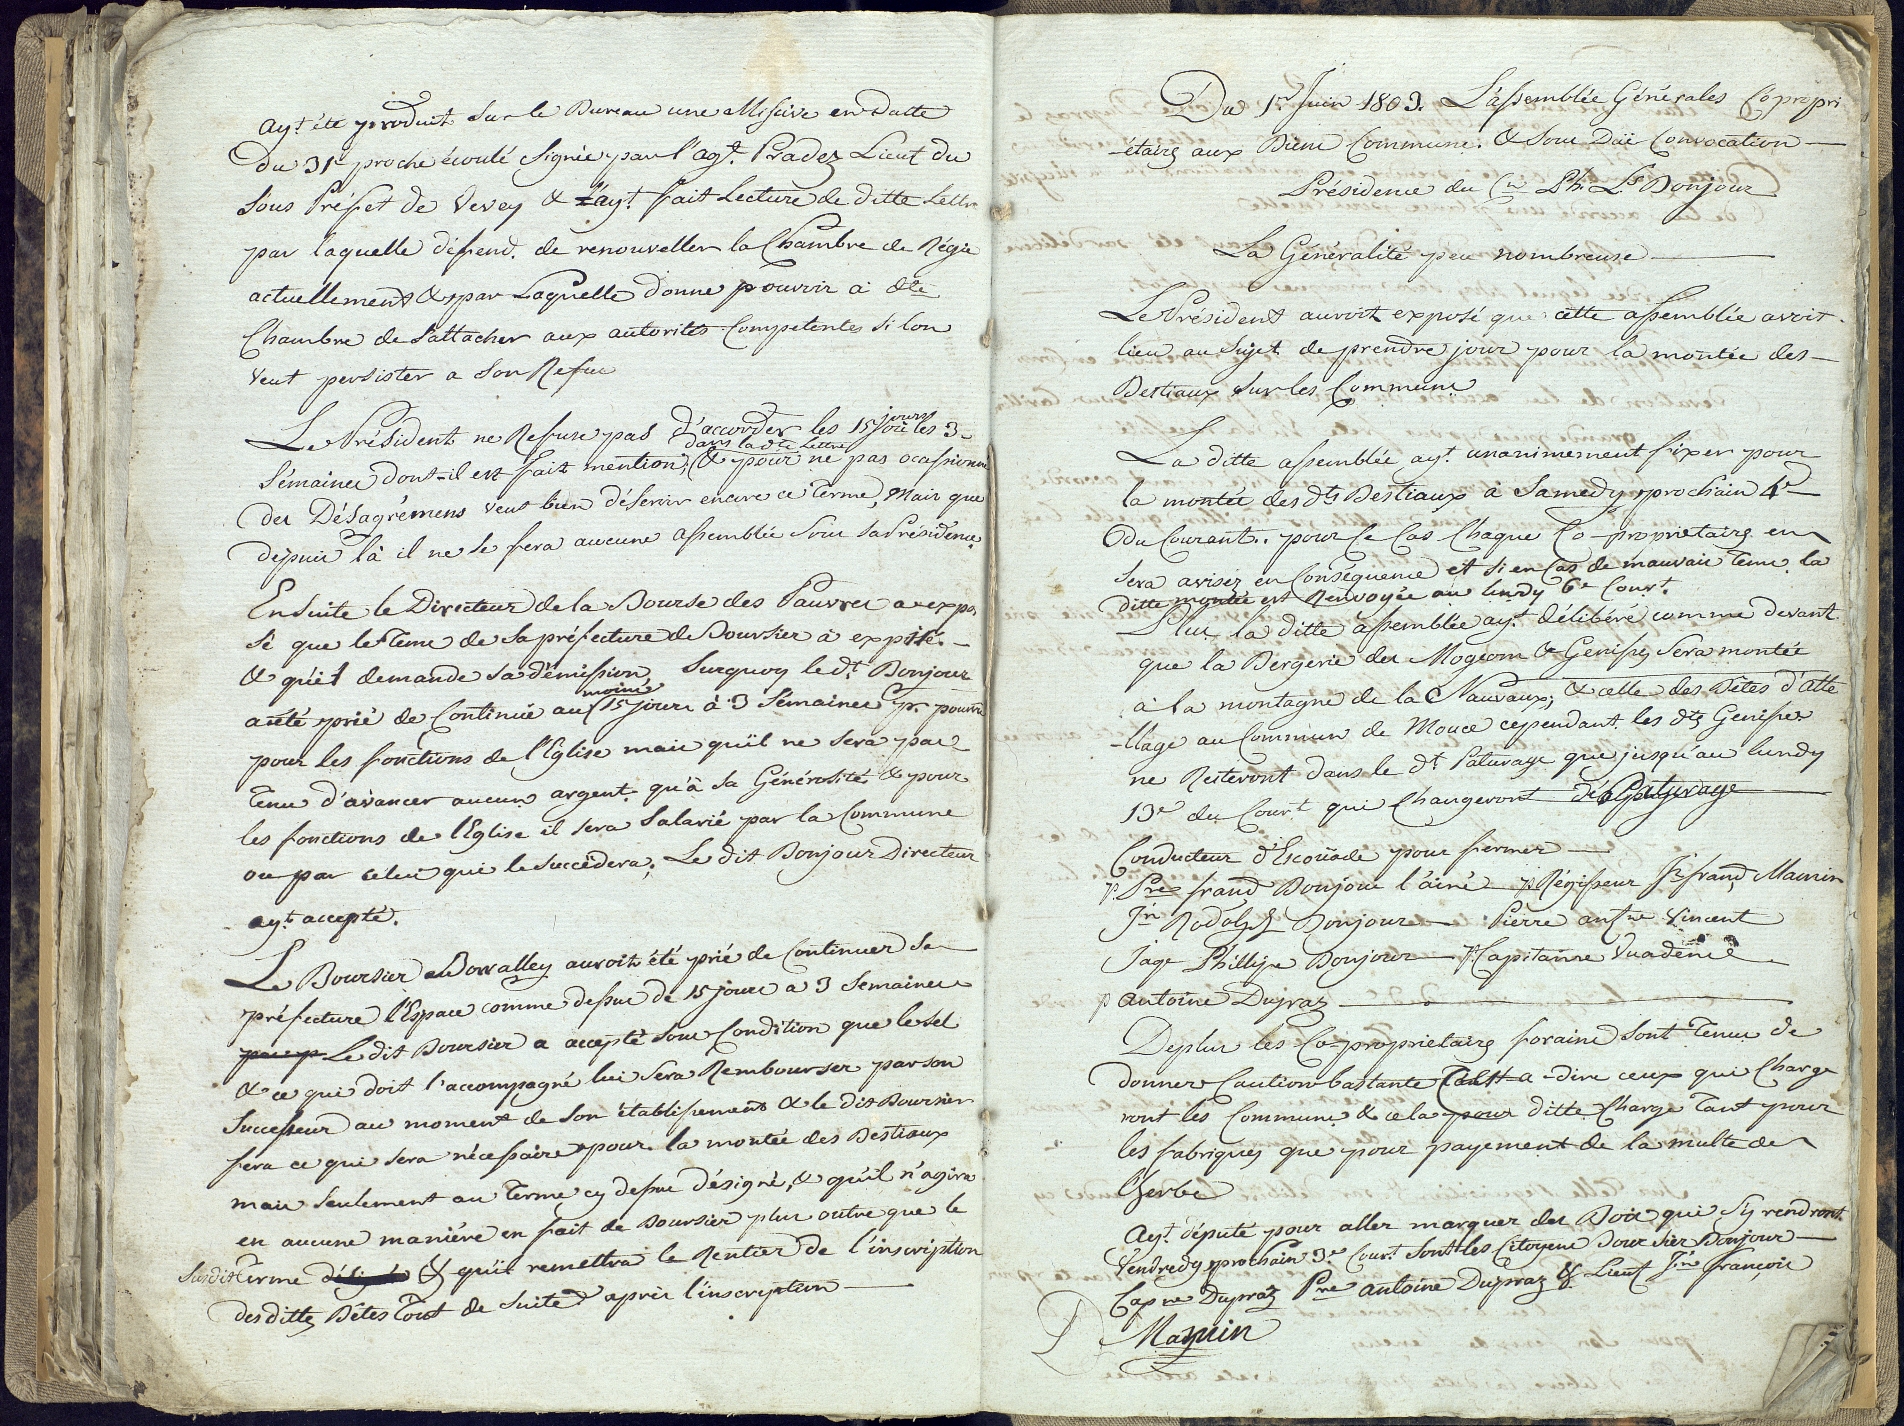 ayt. été produit sur le Bureau une Missive en datte
du 31e proche écoulé signée par l'agt. Pradez Lieut du
Sous Préfet de Vevey & l'ayt. fait Lecture de ditte Lettre
par laquelle défend. de renouveller la Chambre de Régie
actuellement & par Laquelle donne pouvoir à dte
Chambre de s'attacher aux autorités Competentes si l'on
veut persister a son Refus
Le Président ne Refuse pas d'accorder les 15 jours ou les 3
Semaines dont-il est fait mention dans la dte Lettre, & pour ne pas ocasionner
des Désagrémens veut bien déservir encore ce terme, Mais que
depuis là il ne se fera aucune assemblée sous sa Présidence.
Ensuite le Directeur de la Bourse des Pauvres a expo
sé que le Tems de sa préfecture de Boursier à expiré.
& qu'il demande sa démission, Surquoy le dt. Bonjour
a été prié de Continué au moins 15 jours à 3 Semaines pr. pourvu
pour les fonctions de l'Eglise mais qu'il ne sera pas
tenu d'avancer aucun argent qu'à sa Générosité & pour
les fonctions de l'Eglise il sera Salarié par la Commune
ou par celui qui le Succèdera; Le dit Bonjour Directeur
ayt. accepté.
Le Boursier Dorvalley auroit été prié de Continuer sa
préfecture l'Espace comme dessus de 15 jours a 3 Semaines
Le dit Boursier a accepté sous Condition que le sel
& ce qui doit l'accompagné lui sera Rembourser par son
Successeur au moment de son établissement & le dit Boursier
fera ce qui sera nécessaire pour la montée des Bestiaux
mais seulement au terme cy dessus désigné, & qu'il n'agira
en aucune manière en fait de Boursier plus outre que le
Susdit terme désigné & qu'il remettra le Rentier de l'inscription
des dittes Bêtes Tout de Suite après l'inscription
Du 1er Juin 1803. L'assemblée Générales Copropri
-étaires aux Biens Communs. & Sous Düe Convocation
Présidence du Cn Ph. Ls Bonjour
La Généralité peu nombreuse
Le Président auroit exposé que cette assemblée avoit
lieu au Sujet de prendre jour pour la montée des
Bestiaux sur les Communs
La ditte assemblée ayt. unanimement fixer pour
la montée des dts Bestiaux à Samedy prochain 4e
du Courant.. pour ce Cas Chaque Co-proprietaires en
sera avisez en Conséquence et si en Cas de mauvais tems, la
ditte montée est Renvoyée au lundy 6e Court.
Plus la ditte assemblée ayt. délibéré comme devant
que la Bergerie des Mogeons & Genisses Sera montée
a la montagne de la Nauvaux; & celle des Bêtes d'atte
-llage au Commun de Mouce cependant les dts Genisses
ne Resteront dans le dt. Paturage que jusqu'au lundy
13e du Court qui Changeront de Paturage
Conducteur d'Escoüade pour fermer
p. Pre frand Bonjour l'ainé p Régisseur Jn franç Mamin
Jn Rodolph Bonjour Pierre antne Vincent
Jaqe Phillipe Bonjour p Capitaine Vuadens
p antoine Dupraz
Deplus les Co-proprietaires forains sont Tenus de
donner Caution bastante C'est-a-dire ceux qui Charge
ront les Communs & cela pour ditte Charge Tant pour
les fabriques que pour payement de la multe de
l'herbe
Ayt. député pour aller marquer des Bois qui s'y rendront
Vendredy prochain 3e Court. sont les Citoyens Boursier Bonjour
Capne Dupraz Pre antoine Dupraz & Lieut Jn françois
Mamin